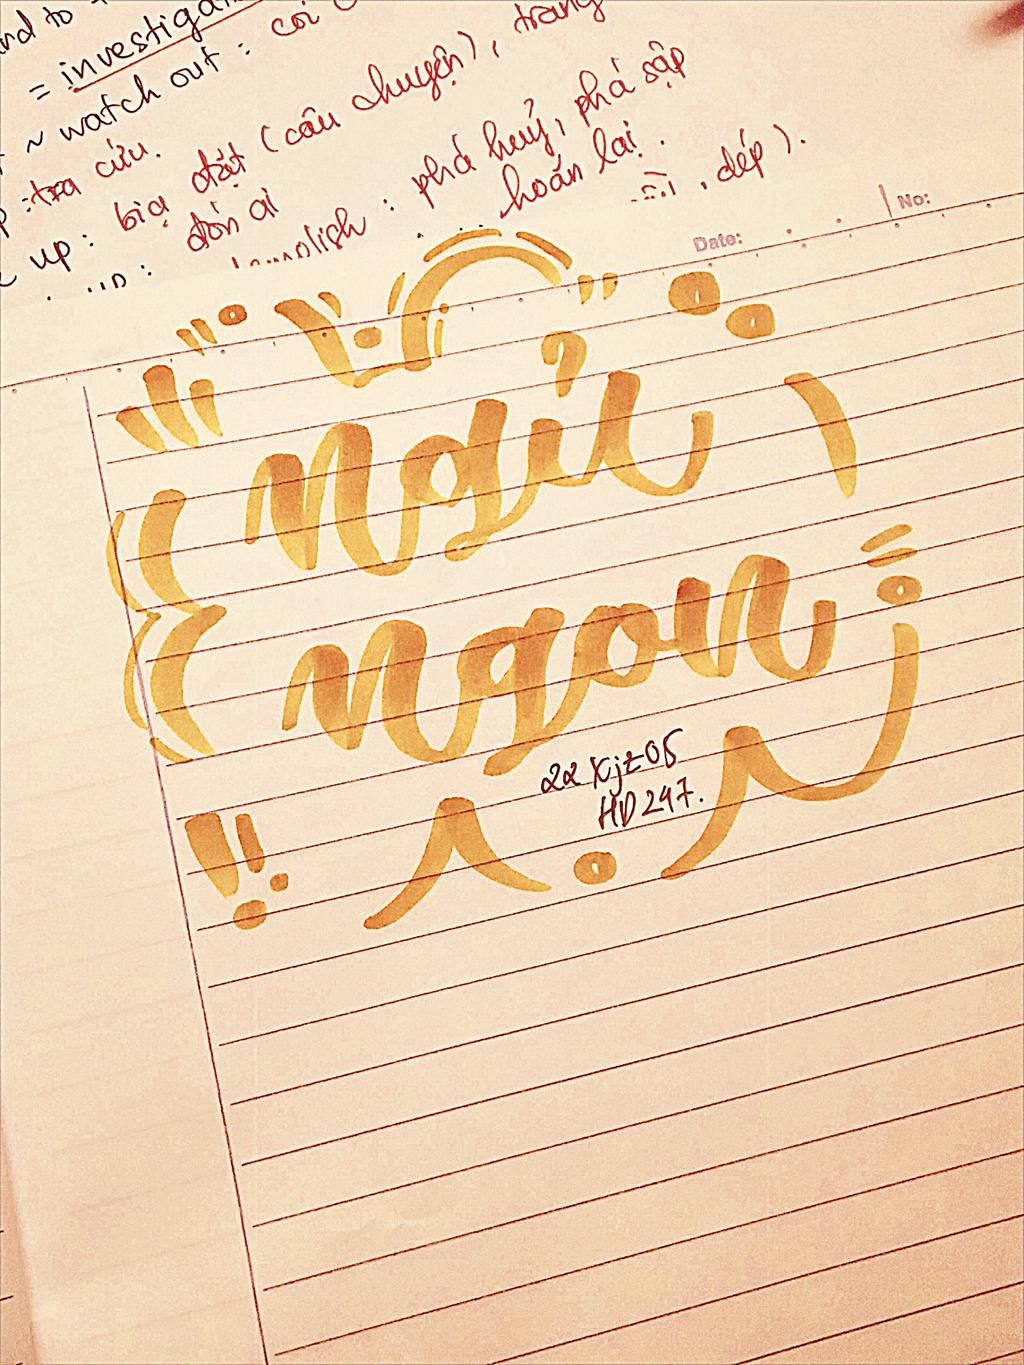 = investiga
~ watch out : coi
: tra cứu.
up : bịa đặt (câu chuyện), trang
đón ai
: phá huỷ, phá sập
hoãn lại.
, dép).
Date:
No:
Ngủ
ngon
22 Xjz05
HD247.